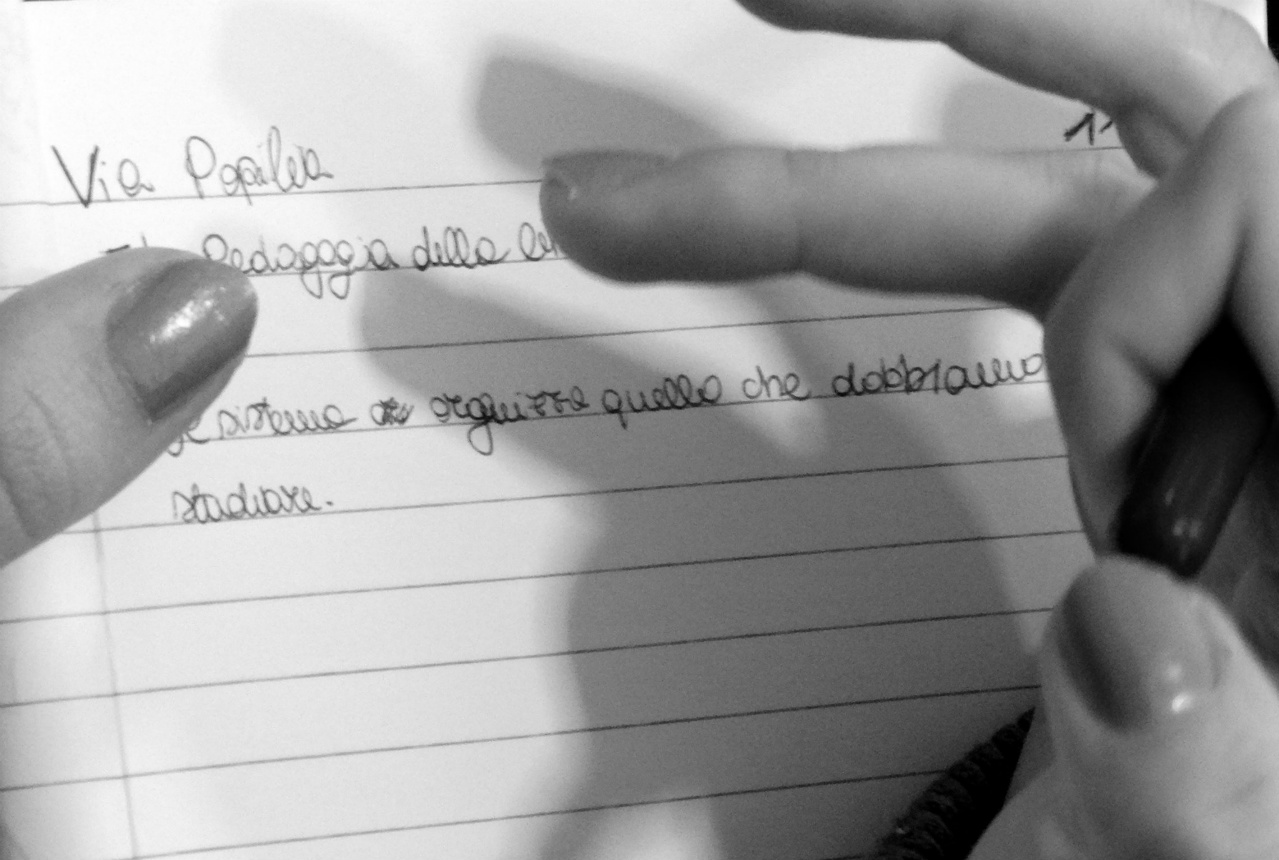 Via Popilia
11
Pedagogia della
sistema organizza quello che dobbiamo
studiare.